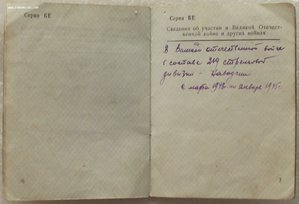 Серия БЕ
Серия БЕ
Сведения об участии в Великой Отечест-
венной войне и других войнах
В Великой отечественной войне
в составе 219 стрелковой
дивизии - наводчик
с марта 1942 по январь 1945
1